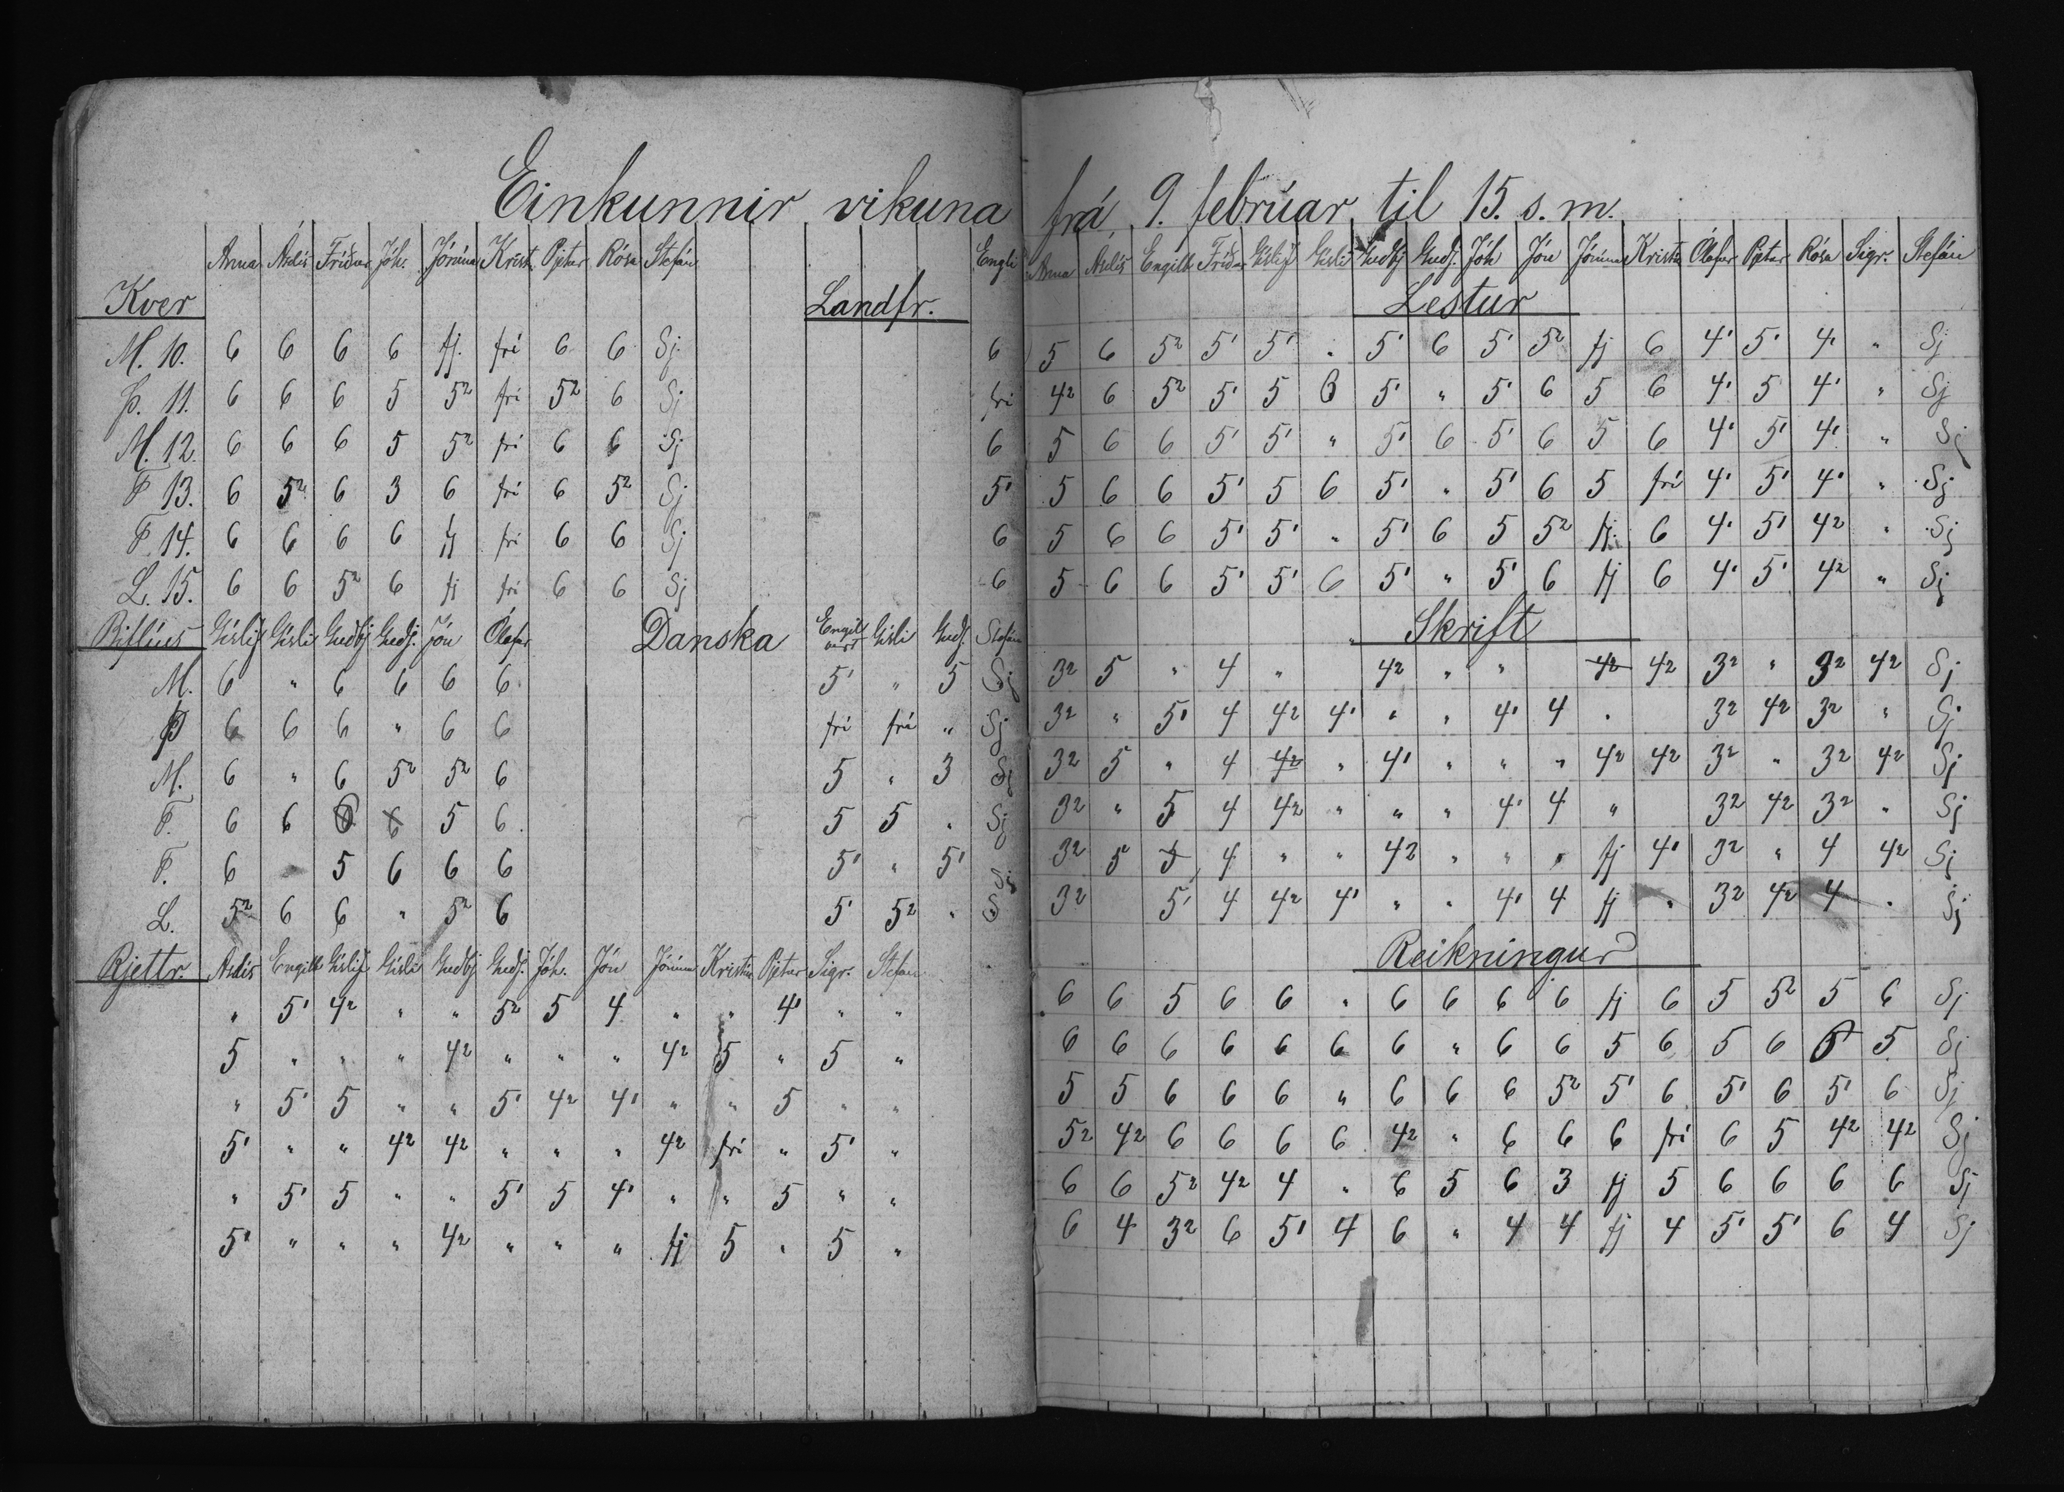 Einkunnir vikuna frá 9. febrúar til 15. s. m.
Anna Ásdís Fríður Jóh. Jórúna Krist. Pjetur Rósa Stefán Engil
Kver Landfr.
M. 10. 6 6 6 6 fj. frí 6 6 Sj. 6
Þ. 11. 6 6 6 5 5² frí 5² 6 Sj frí
M. 12. 6 6 6 5 5² frí 6 6 Sj 6
F 13. 6 5² 6 3 6 frí 6 5² Sj 5¹
F. 14. 6 6 6 6 fj frí 6 6 Sj 6
L. 15. 6 6 5² 6 fj frí 6 6 Sj 6
Biflíus Gíslíf Gísli Guðbj Guðj. Jón Ólafur Danska Engilbert Gísli Guðj. Stefán
M. 6 " 6 6 6 6 5¹ " 5 Sj
Þ 6 6 6 " 6 6 frí frí " Sj
M. 6 " 6 5² 5² 6 5 " 3 Sj
F. 6 6 6 6 5 6 5 5 " Sj
F. 6 5 6 6 6 5¹ " 5¹ Sj
L. 5² 6 6 " 5² 6 5¹ 5² " S
Rjettr. Asdís Engilb Gíslíf Gísli Guðbj Guðj. Jóh. Jón Jórúna Kristín Pjetur Sigr. Stefán
" 5¹ 4² " " 5² 5 4 " " 4¹ " "
5 " " " 4² " " " 4² 5 " 5 "
" 5¹ 5 " " 5¹ 4² 4¹ " " 5 " "
5¹ " " 4² 4² " " " 4² frí " 5¹ "
" 5¹ 5 " " 5¹ 5 4¹ " " 5 " "
5² " " " 4² " " " fj 5 " 5 "
Anna Asdís Engilb Fríður Gíslíf Gísli Guðbj Guðj. Jóh Jón Jórúna Kristín Ólafur Pjetur Rósa Sigr. Stefán
Lestur
5 6 5² 5¹ 5¹ " 5¹ 6 5¹ 5² fj 6 4¹ 5¹ 4¹ " Sj
4² 6 5² 5¹ 5 6 5¹ " 5¹ 6 5 6 4¹ 5 4¹ " Sj
5 6 6 5¹ 5¹ " 5¹ 6 5¹ 6 5 6 4¹ 5¹ 4¹ " Sj
5 6 6 5¹ 5 6 5¹ " 5¹ 6 5 frí 4¹ 5¹ 4¹ " Sj
5 6 6 5¹ 5¹ " 5¹ 6 5 5² fj. 6 4¹ 5¹ 4² " Sj
5 6 6 5¹ 5¹ 6 5¹ " 5¹ 6 fj 6 4¹ 5¹ 4² " Sj
Skrift
3² 5 " 4 " 4² " " 4² 4² 3² " 3² 4² Sj
3² " 5¹ 4 4² 4¹ " " 4¹ 4 " 3² 4² 3² " Sj
3² 5 " 4 4² " 4¹ " " " 4² 4² 3² " 3² 4² Sj
3² " 5 4 4² " " " 4¹ 4 " 3² 4² 3² " Sj
3² 5 5 4 " " 4² " " " fj 4¹ 3² " 4 4² Sj
3² 5¹ 4 4² 4¹ " " 4¹ 4 fj " 3² 4² 4 " Sj
Reikningur
6 6 5 6 6 " 6 6 6 6 fj 6 5 5² 5 6 Sj
6 6 6 6 6 6 6 " 6 6 5 6 5 6 5 5 Sj
5 5 6 6 6 " 6 6 6 5² 5¹ 6 5¹ 6 5¹ 6 Sj
5² 4² 6 6 6 6 4² " 6 6 6 frí 6 5 4² 4² Sj
6 6 5² 4² 4 " 6 5 6 3 fj 5 6 6 6 6 Sj
6 4 3² 6 5¹ 4 6 " 4 4 fj 4 5¹ 5¹ 6 4 Sj